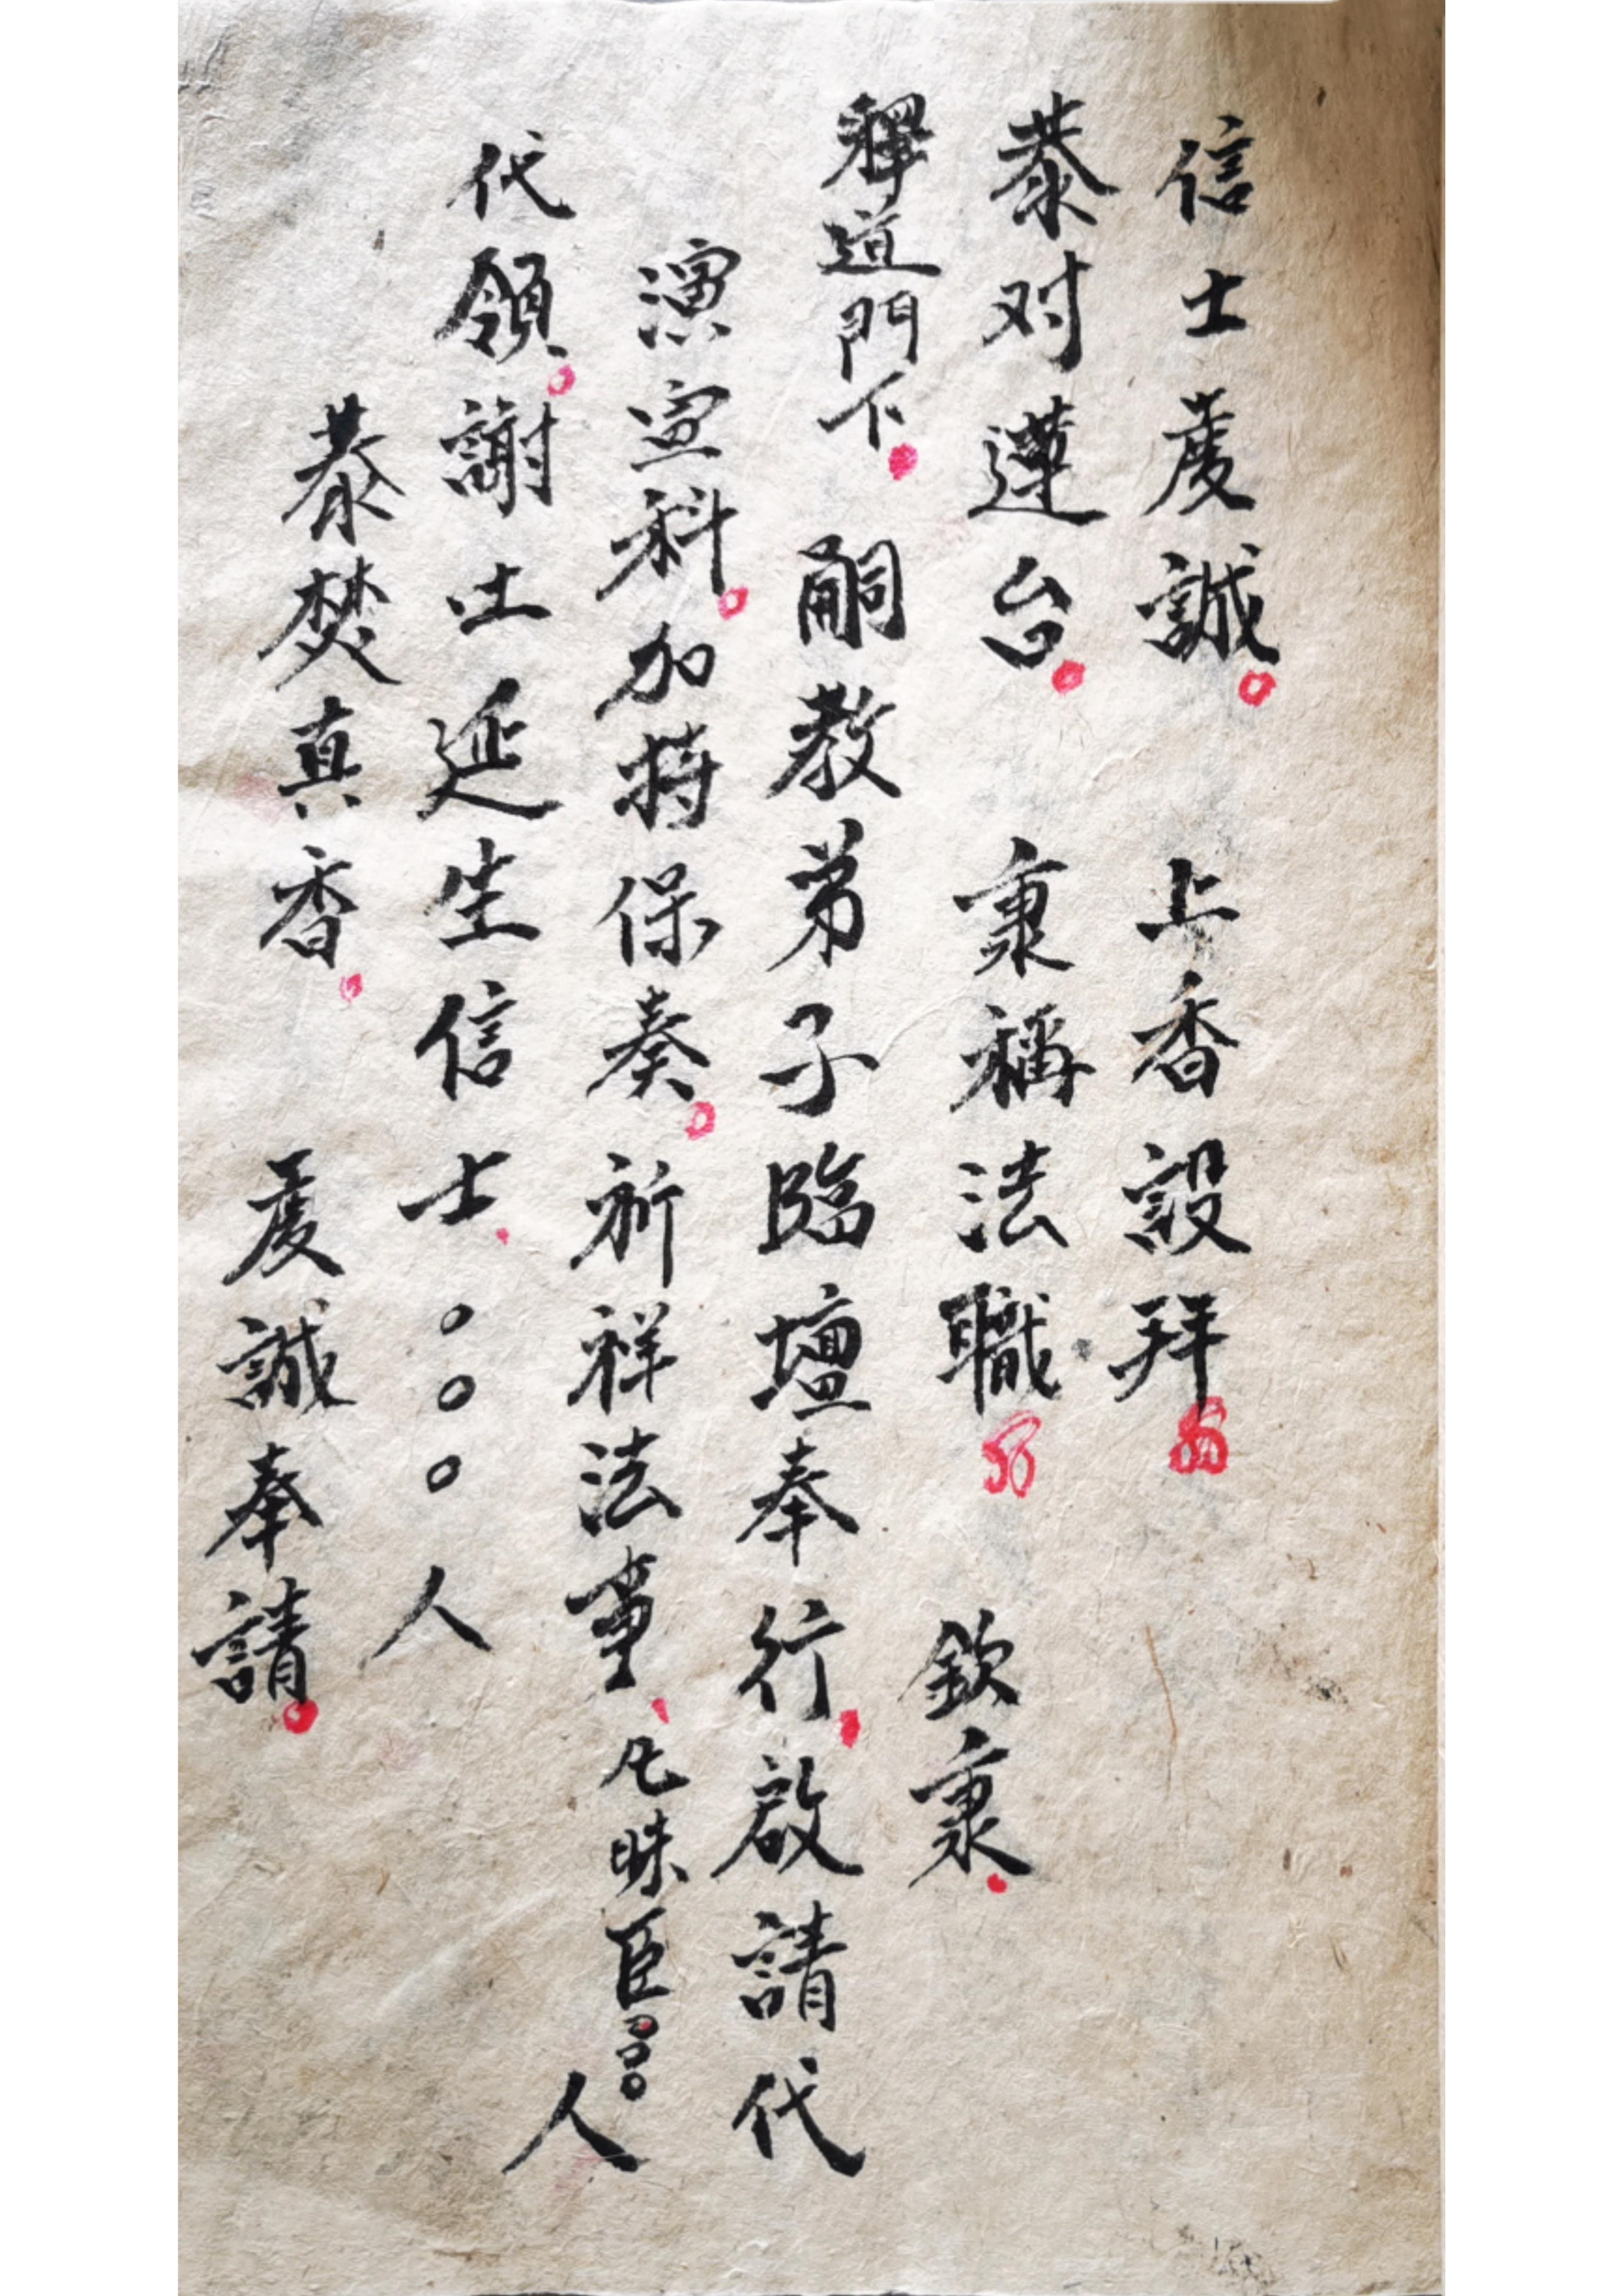 信士虔誠。 上香設拜
恭对蓮台。 稟稱法職 欽稟
釋道門下 嗣教弟子臨壇奉行啟請代
演宣科。加持保奏。祈祥法事凡昧臣〇〇〇人
代領。謝土延生信士〇〇〇人
恭焚真香 虔誠奉請。